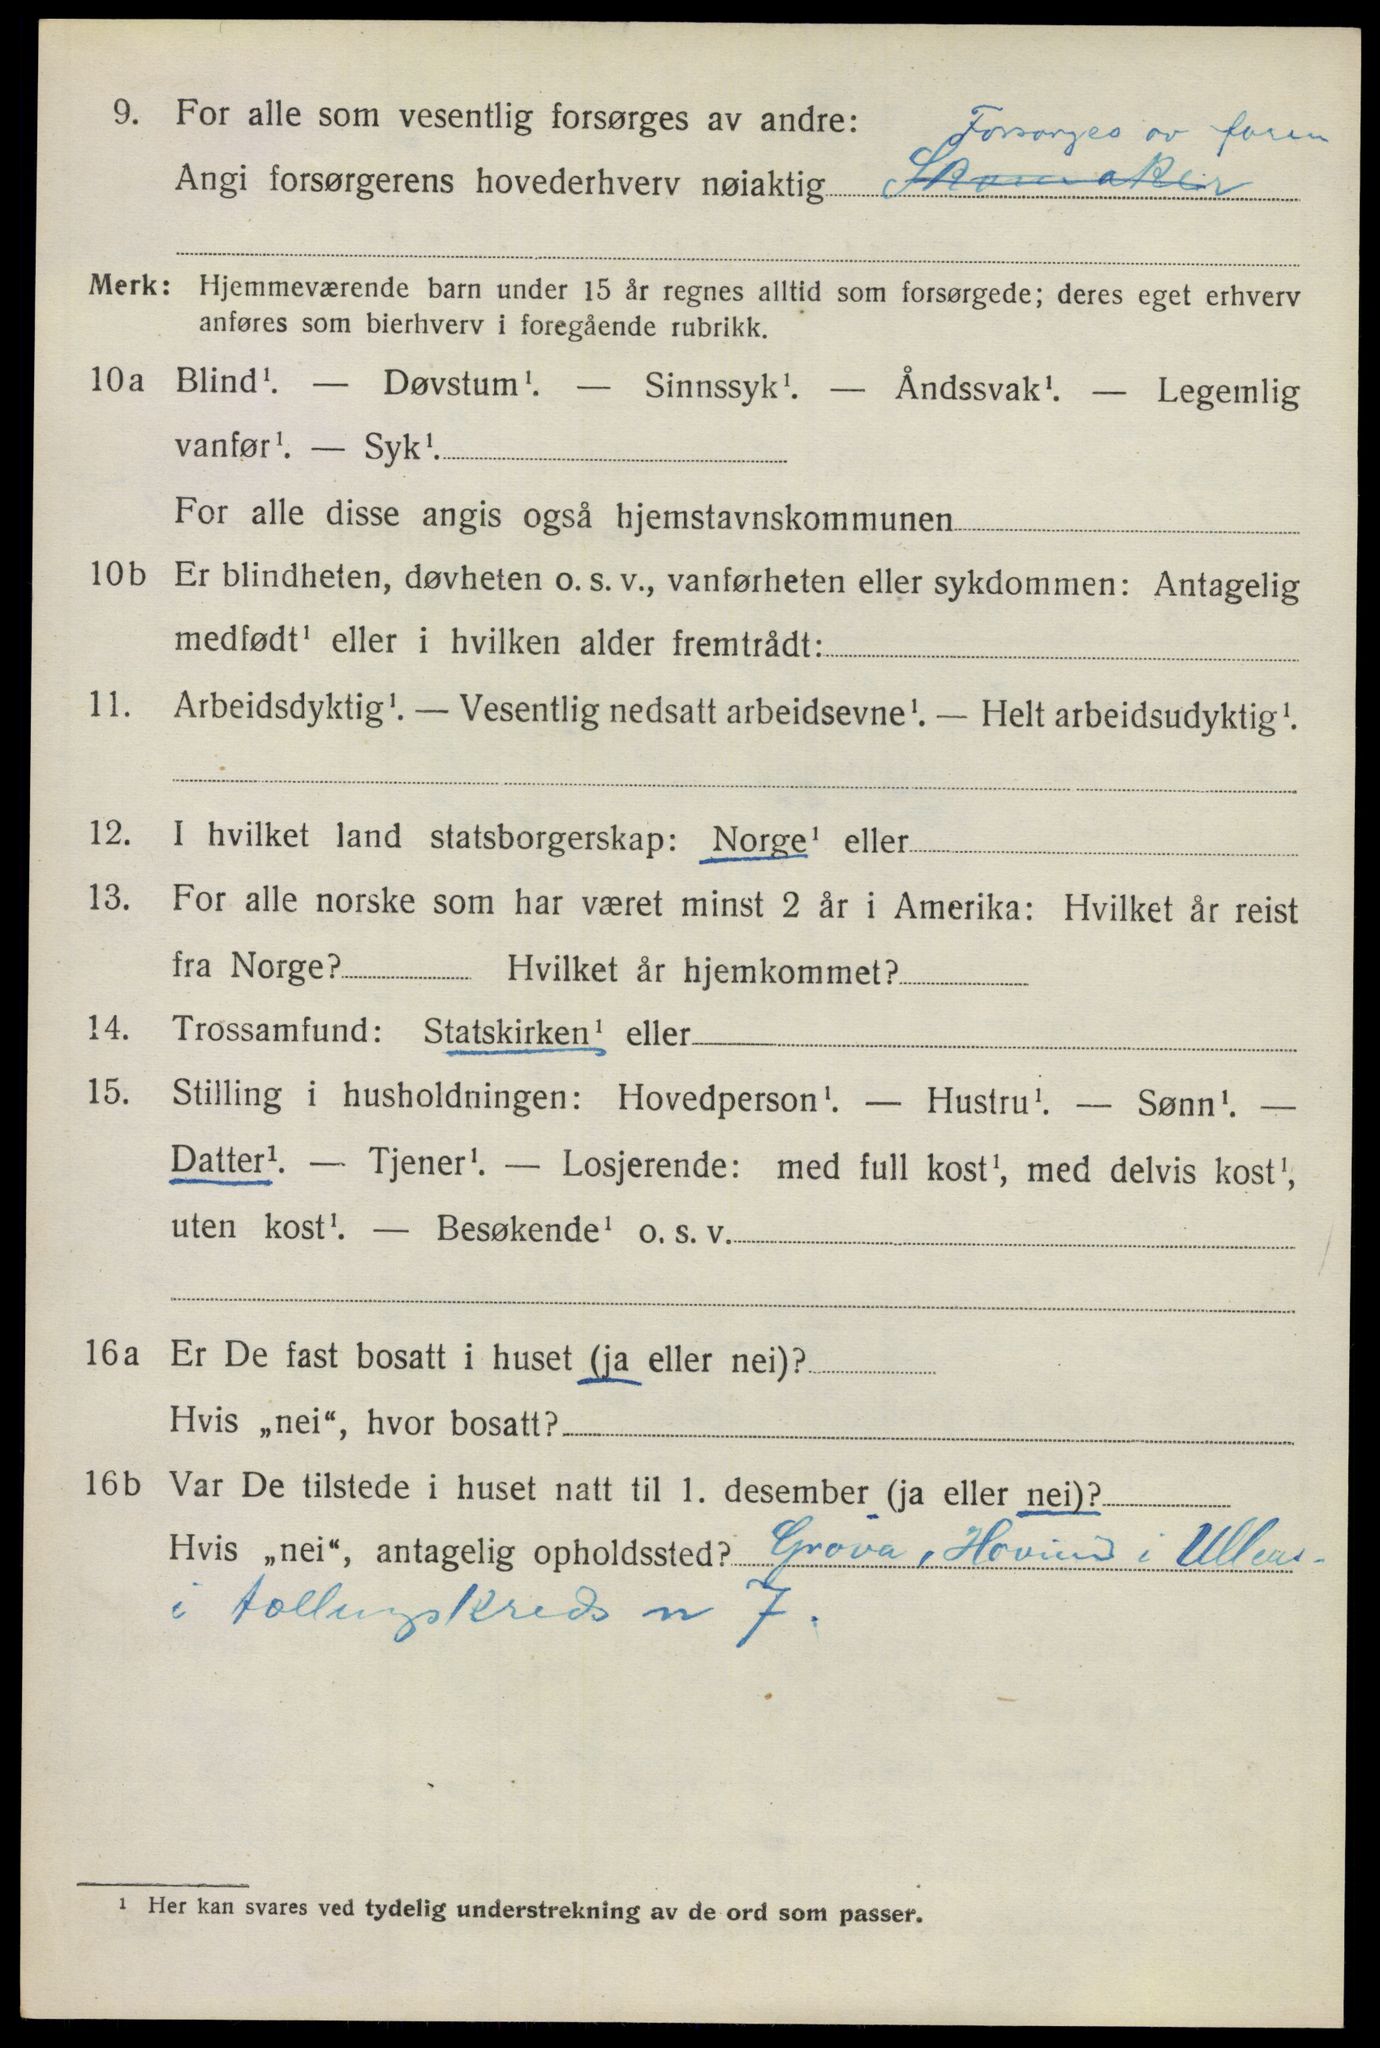 9. For alle som vesentlig forsørges av andre: Forsørges av faren
Angi forsørgerens hovederhverv nøiaktig Skomaker
Merk: Hjemmeværende barn under 15 år regnes alltid som forsørgede; deres eget erhverv
anføres som bierhverv i foregående rubrikk.
10a Blind¹. — Døvstum¹. — Sinnssyk¹. — Åndssvak¹. — Legemlig
vanfør¹. — Syk¹.
For alle disse angis også hjemstavnskommunen
10b Er blindheten, døvheten o. s. v., vanførheten eller sykdommen: Antagelig
medfødt¹ eller i hvilken alder fremtrådt:
11. Arbeidsdyktig¹. — Vesentlig nedsatt arbeidsevne¹. — Helt arbeidsudyktig¹.
12. I hvilket land statsborgerskap: Norge¹ eller
13. For alle norske som har været minst 2 år i Amerika: Hvilket år reist
fra Norge? Hvilket år hjemkommet?
14. Trossamfund: Statskirken¹ eller
15. Stilling i husholdningen: Hovedperson¹. — Hustru¹. — Sønn¹. —
Datter¹. — Tjener¹. — Losjerende: med full kost¹, med delvis kost¹,
uten kost¹. — Besøkende¹ o. s. v.
16a Er De fast bosatt i huset (ja eller nei)?
Hvis „nei“, hvor bosatt?
16b Var De tilstede i huset natt til 1. desember (ja eller nei)?
Hvis „nei“, antagelig opholdssted? Grøva, Hovind i Ullens-
i tællingskreds n 7.
¹ Her kan svares ved tydelig understrekning av de ord som passer.